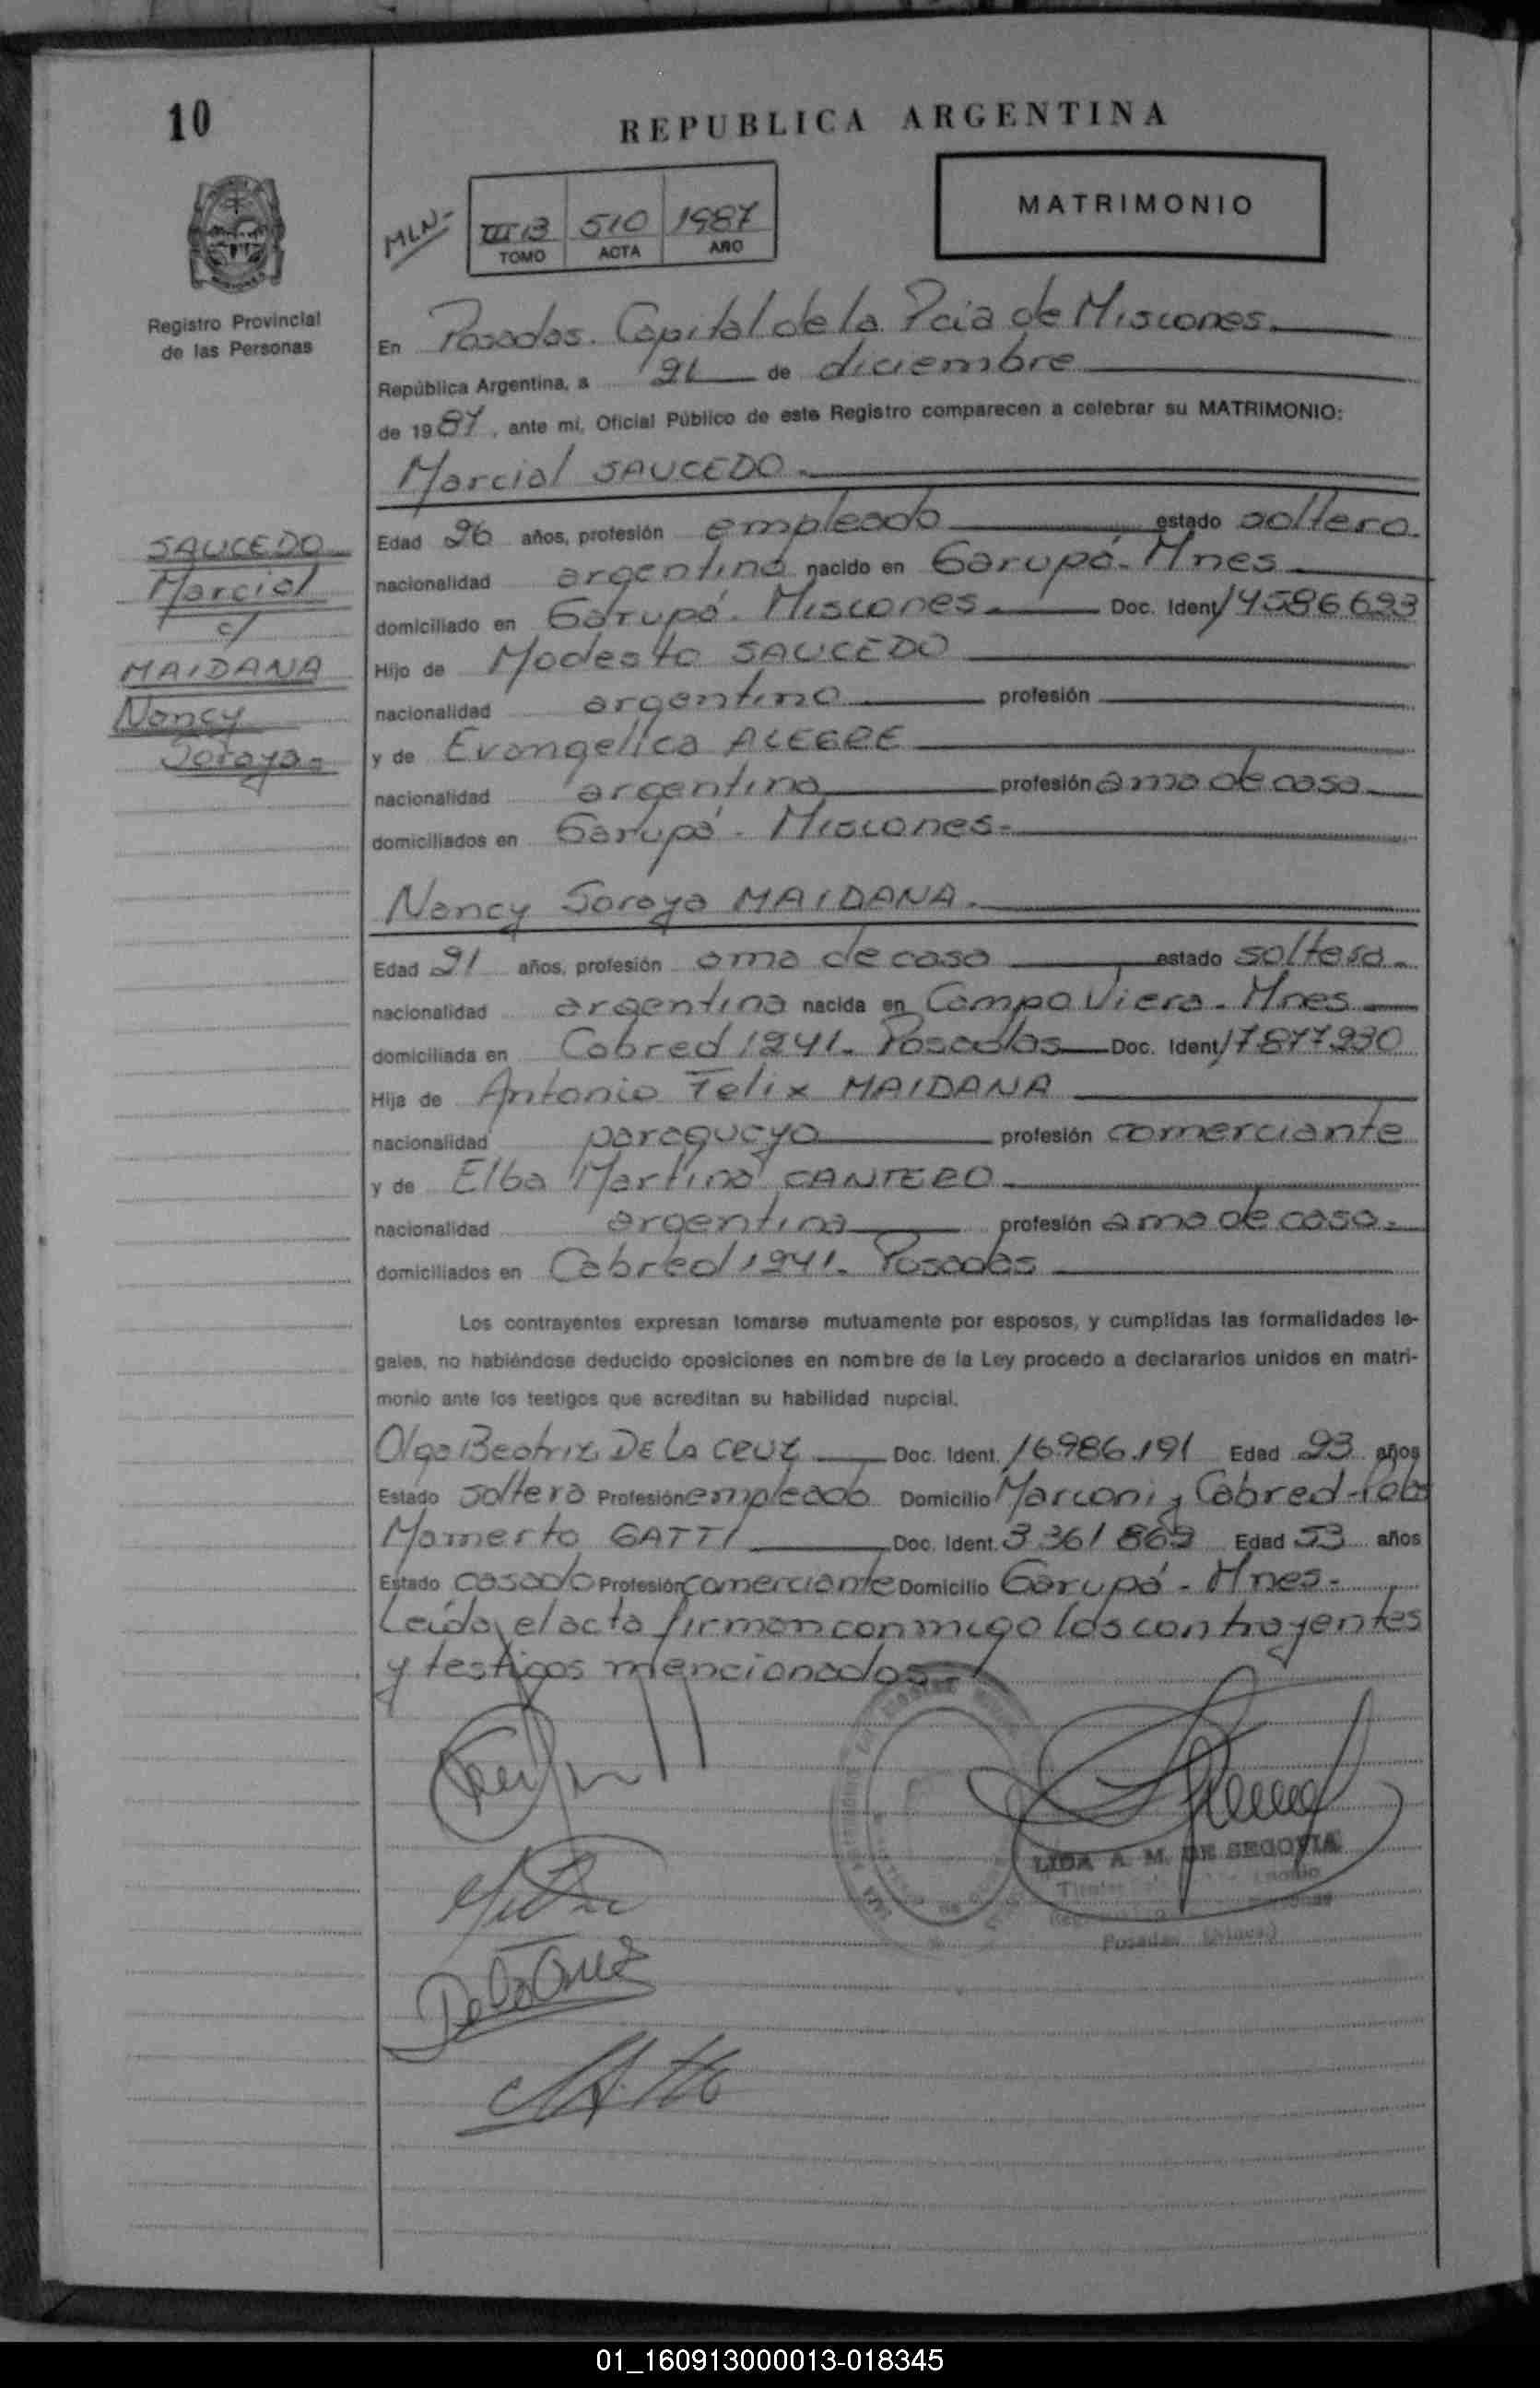 10
REPUBLICA ARGENTINA
MLN-
III B 510 1987
TOMO ACTA AÑO
MATRIMONIO
Registro Provincial
de las Personas
En Posadas. Capital de la Pcia de Misiones.
República Argentina, a 21 de diciembre
de 1987, ante mí, Oficial Público de este Registro comparecen a celebrar su MATRIMONIO:
Marcial SAUCEDO.
SAUCEDO
Marcial
c/
MAIDANA
Nancy
Soraya.
Edad 26 años, profesión empleado estado soltero
nacionalidad argentina nacido en Garupá. Mnes
domiciliado en Garupá. Misiones. Doc. Ident. 14586693
Hijo de Modesto SAUCEDO
nacionalidad argentino profesión
y de Evangelica ALEGRE
nacionalidad argentina profesión ama de casa
domiciliados en Garupá - Misiones-
Nancy Soraya MAIDANA.
Edad 21 años, profesión ama de casa estado soltera.
nacionalidad argentina nacida en Campo Viera. Mnes
domiciliada en Cabred 1241. Posadas Doc. Ident. 17877230
Hija de Antonio Felix MAIDANA
nacionalidad paraguayo profesión comerciante
y de Elba Martina CANTERO
nacionalidad argentina profesión ama de casa.
domiciliados en Cabred 1241. Posadas
Los contrayentes expresan tomarse mutuamente por esposos, y cumplidas las formalidades le-
gales, no habiéndose deducido oposiciones en nombre de la Ley procedo a declararlos unidos en matri-
monio ante los testigos que acreditan su habilidad nupcial.
Olga Beatriz DE LA CRUZ Doc. Ident. 16.986.191 Edad 23 años
Estado soltera Profesión empleada Domicilio Marconi y Cabred-Pdas
Mamerto GATTI Doc. Ident. 3.361 869 Edad 53 años
Estado casado Profesión comerciante Domicilio Garupá - Mnes-
Leída el acta firman conmigo los contrayentes
y testigos mencionados.-
De la Cruz
LIDA A. M. DE SEGOVIA
Posadas (Mnes.)
01_160913000013-018345